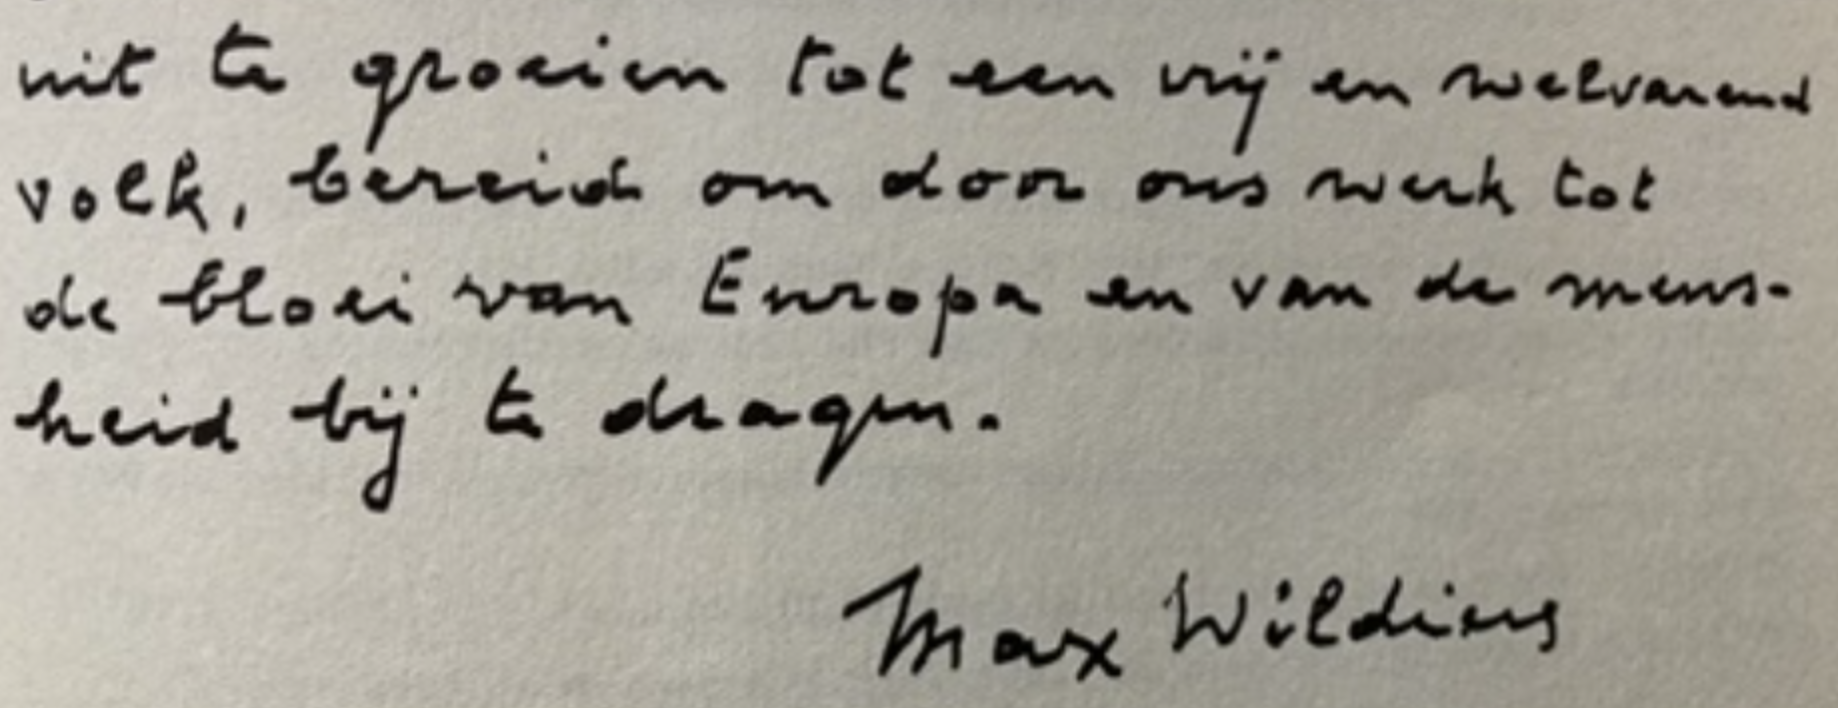 uit te groeien tot een vrij en welvarend
volk, bereid om door ons werk tot
de bloei van Europa en van de mens-
heid bij te dragen.
Max Wildiers